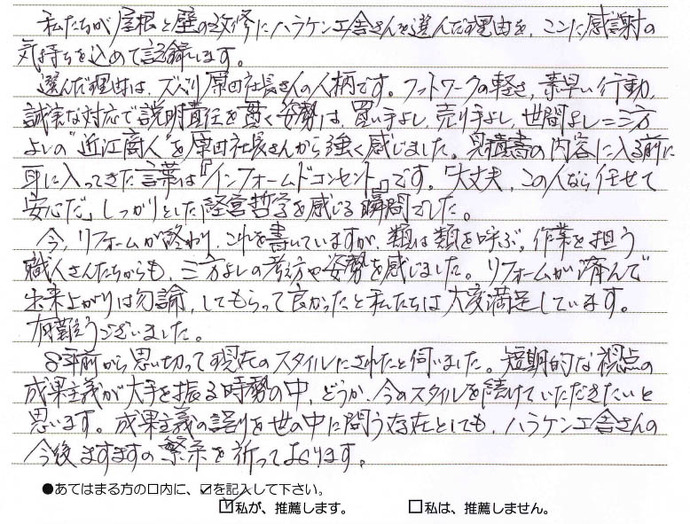 私たちが屋根と壁の改修にハラケン工舎さんを選んだ理由を、ここに感謝の
気持ちを込めて記録します。
選んだ理由は、ズバリ原田社長さんの人柄です。フットワークの軽さ、素早い行動、
誠実な対応で説明責任を貫く姿勢は、買い手よし、売り手よし、世間よし=三方
よしの"近江商人"を原田社長さんから強く感じました。見積書の内容に入る前に
耳に入ってきた言葉は『インフォームドコンセント』です。「大丈夫、この人なら任せて
安心だ」しっかりとした経営哲学を感じる瞬間でした。
今、リフォームが終わり、これを書いていますが、類は類を呼ぶ。作業を担う
職人さんたちからも、三方よしの考え方や姿勢を感じました。リフォームが"済んで"
出来上がりは勿論、してもらって良かったと私たちは大変満足しています。
有難うございました。
8年前から思い切って現在のスタイルにされたと伺いました。短期的な視点の
成果主義が大手を振る時勢の中、どうか、今のスタイルを続けていただきたいと
思います。成果主義の誤りを世の中に問う存在としても、ハラケン工舎さんの
今後ますますの繁栄を祈っております。
●あてはまる方の口内に、☑を記入して下さい。
☑私が、推薦します。 □私は、推薦しません。